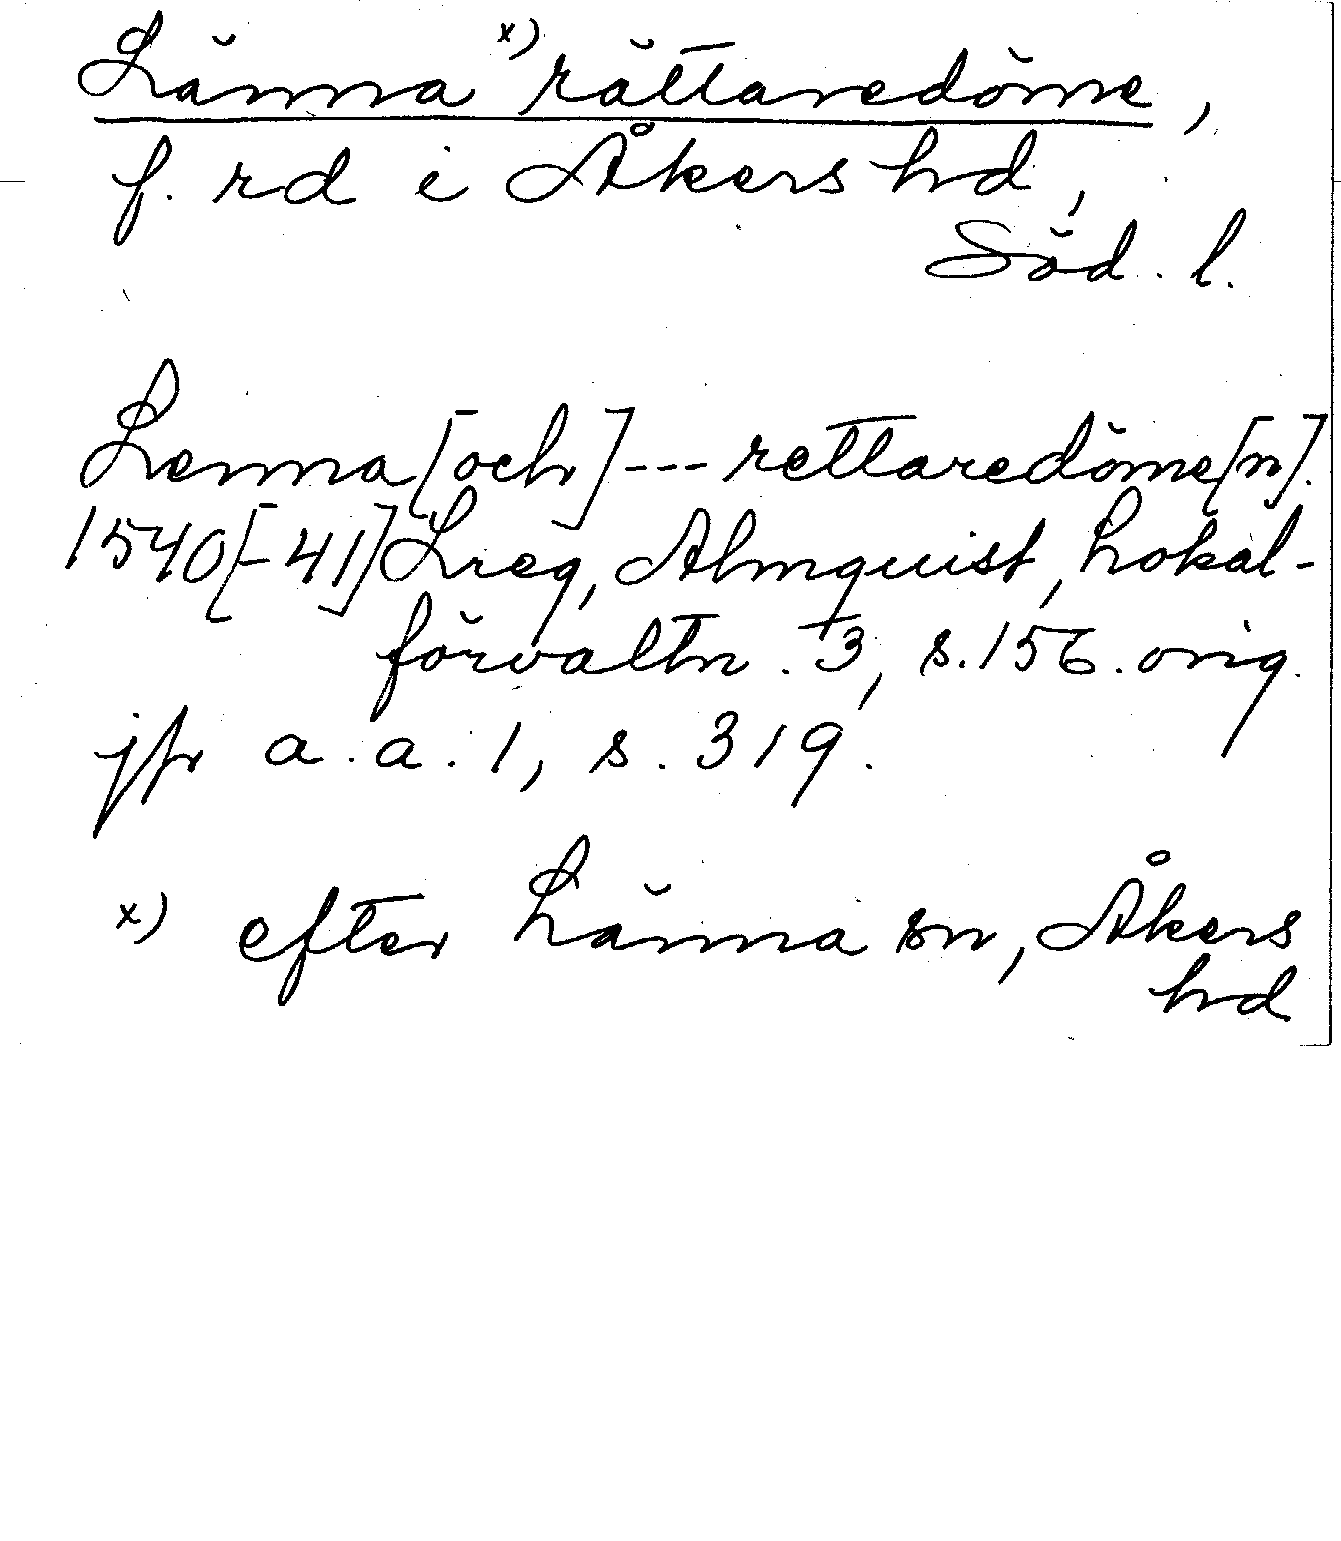 Länna x) rättaredöme,
f. rd i Åkers hd,
Söd. l.
Lenna [och] --- rettaredöme[n].
1540[-41] Lreg, Almquist, Lokal-
förvaltn. 3, s. 156. orig.
jfr a. a. 1, s. 319.
x) efter Länna sn, Åkers
hd